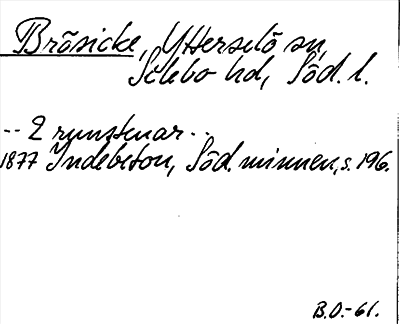 Bråsicke, Ytterselö sn,
Selebo hd, Söd. l.
-- 2 runstenar --
1877 Indebetou, Söd. minnen, s. 196.
B.O.-61.